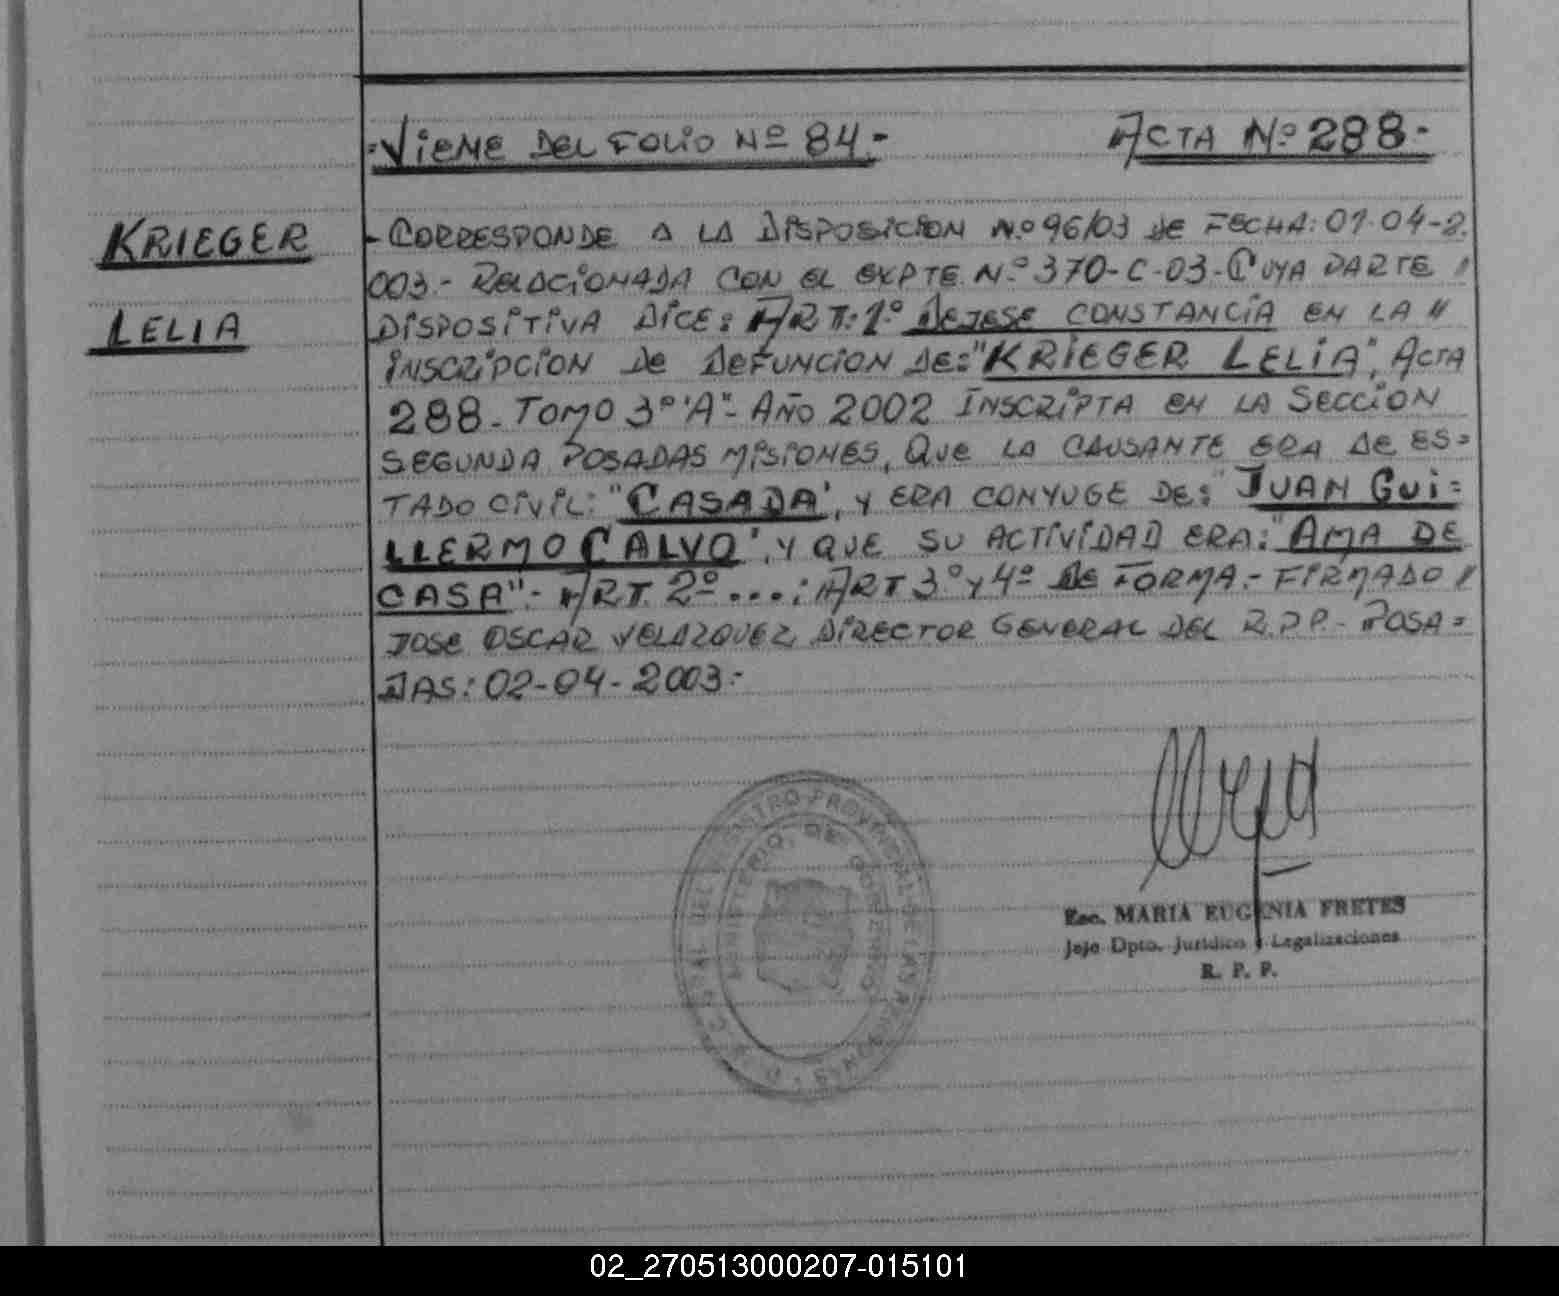 -VIENE DEL FOLIO Nº 84.-
ACTA Nº 288.-
KRIEGER
LELIA
- CORRESPONDE A LA DISPOSICION Nº 96/03 DE FECHA: 01-04-2.
003.- RELACIONADA CON EL EXPTE. Nº 370-C-03.- CUYA PARTE //
DISPOSITIVA DICE: ART: 1º DEJESE CONSTANCIA EN LA //
INSCRIPCION DE DEFUNCION DE: "KRIEGER LELIA", ACTA
288- TOMO 3º "A"- AÑO 2002 INSCRIPTA EN LA SECCION
SEGUNDA POSADAS MISIONES, QUE LA CAUSANTE ERA DE ES=
TADO CIVIL: "CASADA", Y ERA CONYUGE DE: "JUAN GUI=
LLERMO CALVO", Y QUE SU ACTIVIDAD ERA: "AMA DE
CASA".- ART. 2º ...: ART 3º Y 4º DE FORMA.- FIRMADO //
JOSE OSCAR VELAZQUEZ DIRECTOR GENERAL DEL R.P.P.- POSA=
DAS: 02-04-2003.-
REGISTRO PROVINCIAL DE LAS PERSONAS
MINISTERIO DE GOBIERNO
Esc. MARIA EUGENIA FRETES
Jefe Dpto. Jurídico y Legalizaciones
R. P. P.
02_270513000207-015101